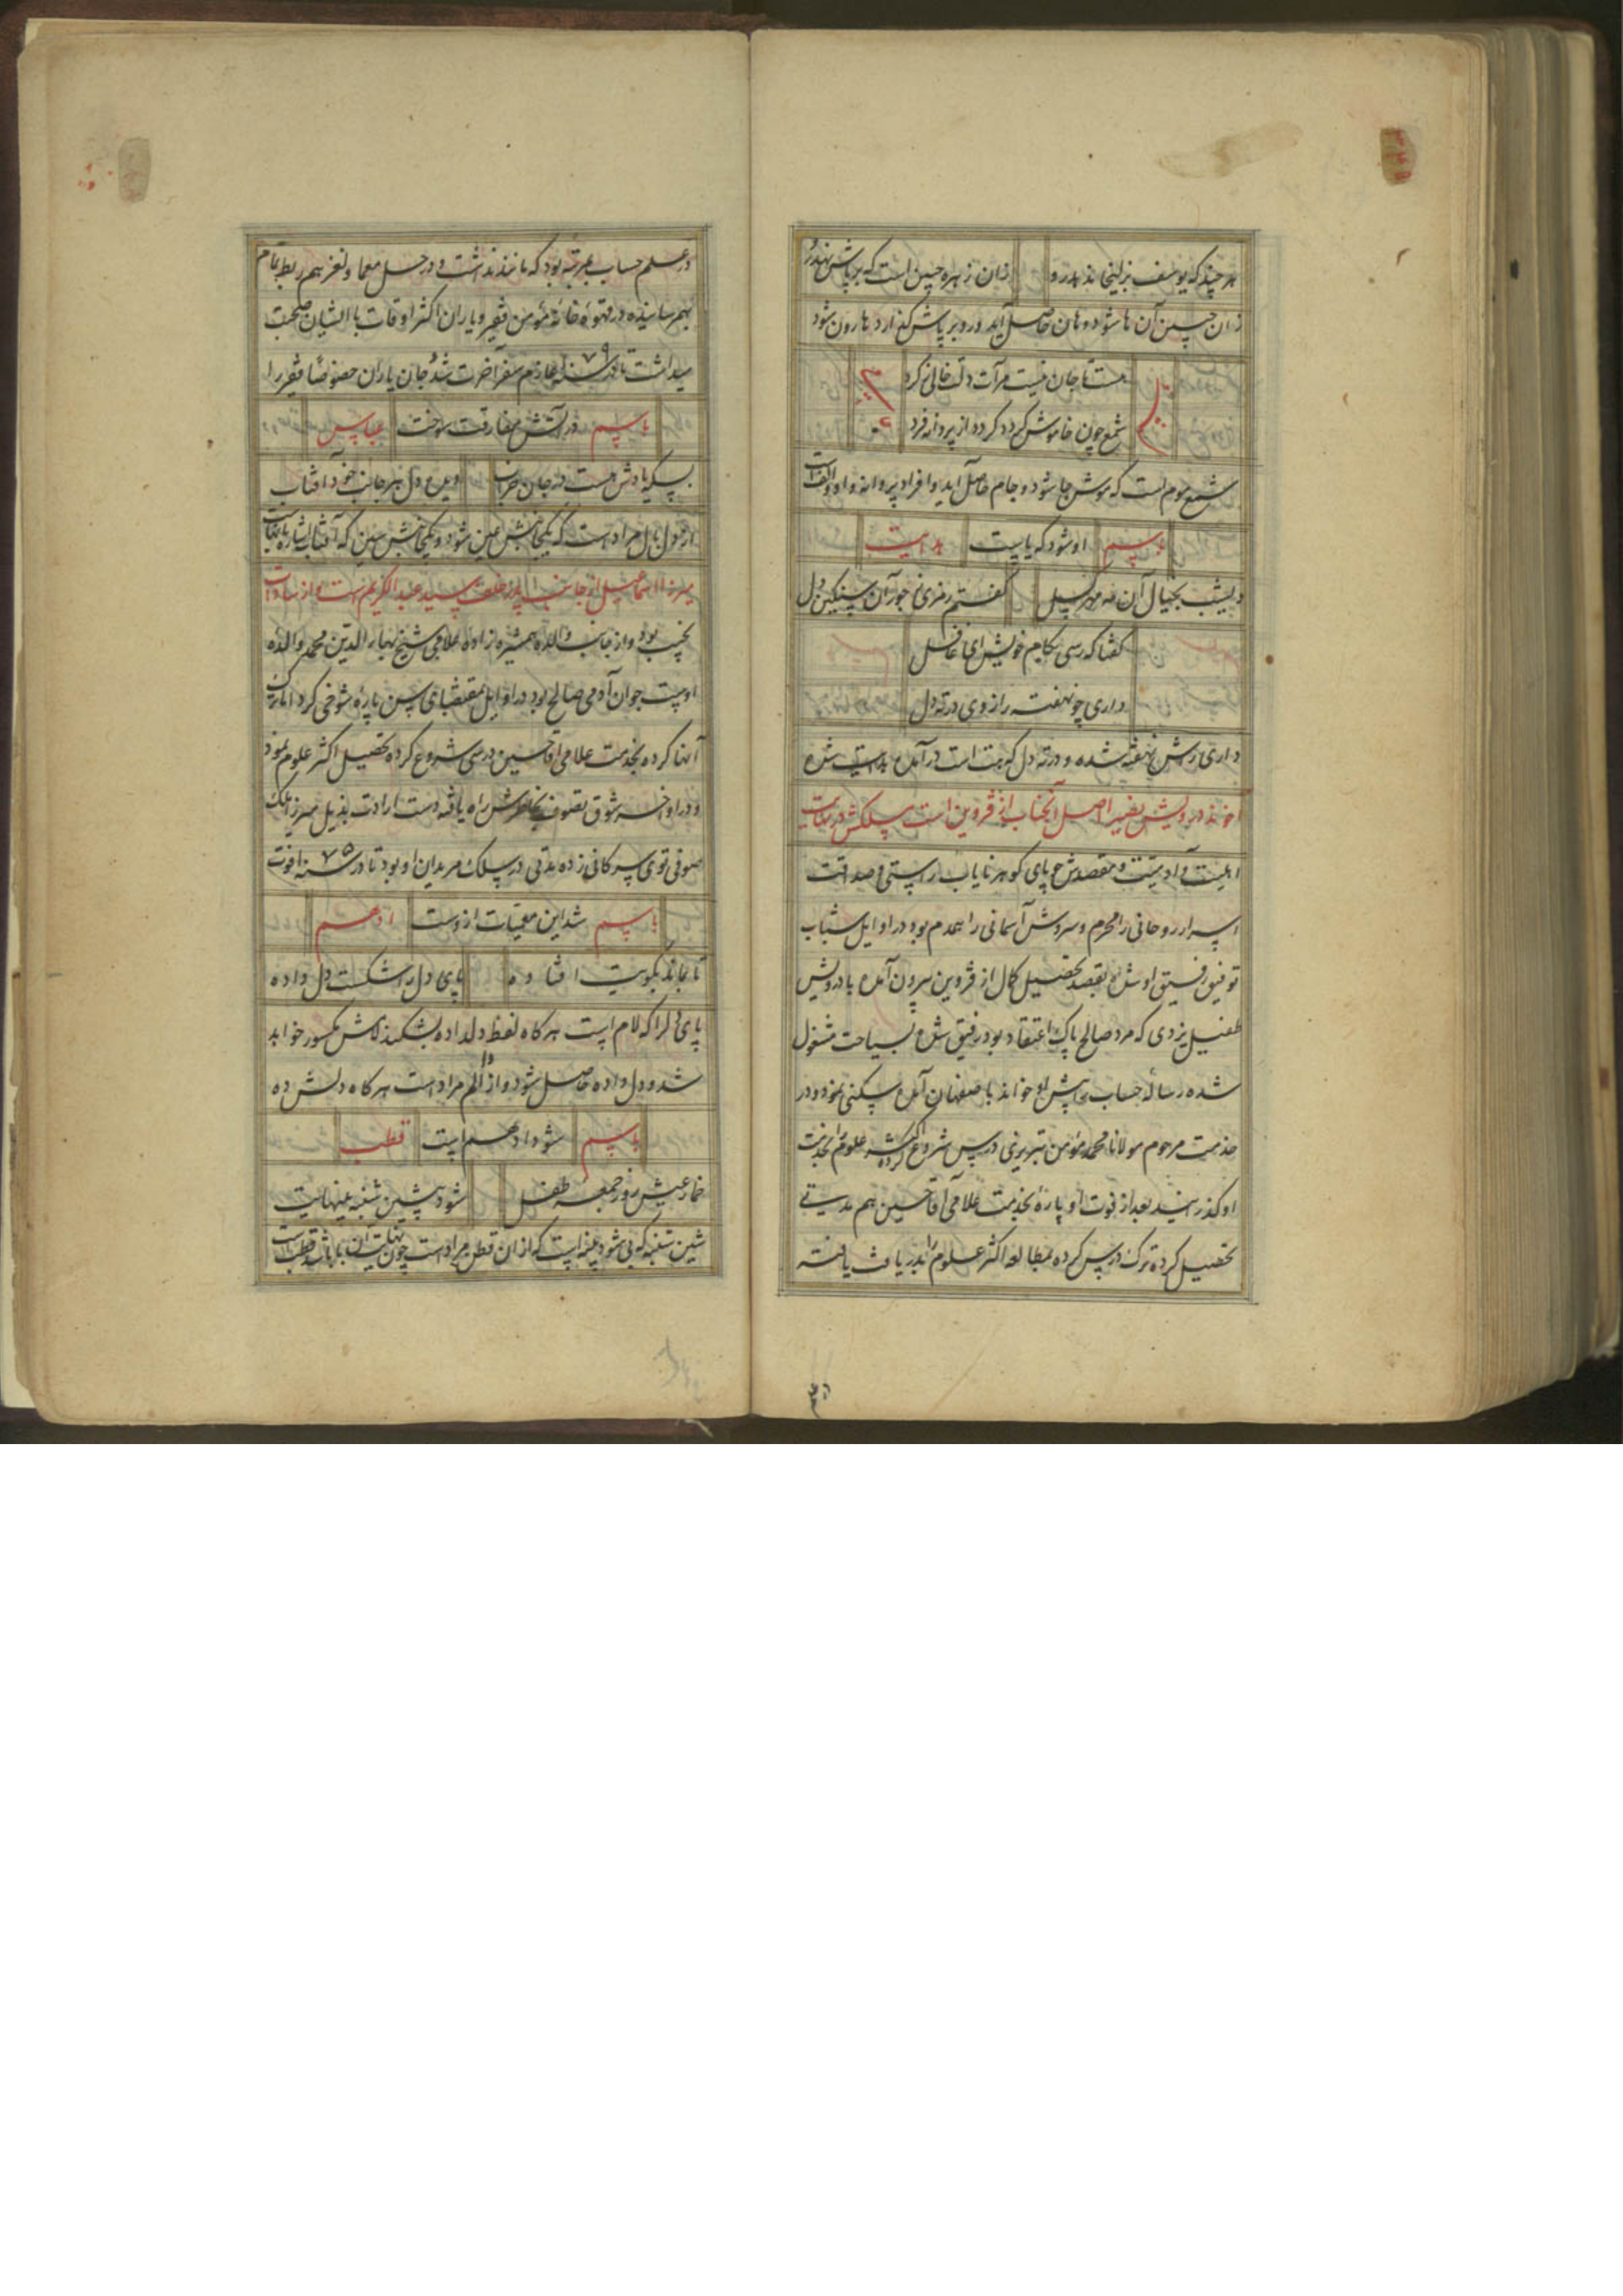 هر چند که یوسف بزلیخا ندهد رو زان زهره جبین است که بر پاش نهد رو
زان جبین آن ها شود و هان حاصل آید و رو بر پاش گذارد هارون شود
هست تا جان نیست مرآت دلت خالی ز کرد
شمع چون خاموش گردد گردد از پروانه فرد
شمع موم است که موش جا شود و جام حاصل آید و افراد پروانه واو و الف است
باسم او شود که یا ست هدایت
دیشب بخیال آن مه مهر گسل گفتم رمزی ز جور آن سنگین دل
گفتا که رسی بکام خویش ای غافل
داری چو نهفته راز وی در ته دل
داری رش نهفته شده و در ته دل که هت است در آمده هدایت شده
آخوند درویش نصیر اصل آنجناب از قزوین است سلکش در
اهلیت و آدمیت و مقصدش جویای گوهر نایاب راستی و صداقت
اسرار روحانی را محرم و سروش آسمانی را همدم بود در اوایل شباب
توفیق رفیق او شده بقصد تحصیل کمال از قزوین بیرون آمده با درویش
طفیل یزدی که مرد صالح پاک اعتقاد بود رفیق شده بسیاحت مشغول
شده رساله حساب پیش او خوانده باصفهان آمده سکنی نمود و در
خدمت مرحوم مولانا محمد مؤمن تبریزی درس شروع کرده اکثر علوم را بخدمت
او گذرانید بعد از فوت او پاره بخدمت علامی آقا حسین هم مدتی
تحصیل کرده ترک درس کرده بمطالعه اکثر علوم را دریافت یافته
در علم حساب بمرتبه بود که مانند نداشت و در حل معما و لغز هم ربط تمام
بهم رسانیده در قهوه خانه مؤمن فقیر و یاران اکثر اوقات با ایشان صحبت
میداشت تا در سنه ۱۰۷۹ عازم سفر آخرت شد و جان یاران خصوصا فقیر را
باسم در آتش مفارقت سوخت عباس
بسکه یادش هست در جان خراب دیده دل هر جانب خود آفتاب
از دل بال مراد است که یکجانبش عین شود و یکجانبش سین که آفتاب اشاره بآنهاست
میرزا اسماعیل از جانب پدر خلف سید عبدالکریم است و از سادات
نجیب بود و از جانب والده همشیره زاده علامی شیخ بهاءالدین محمد والده
اوست جوان آدمی صالح بود در اوایل بمقتضای سن پاره شوخی کرد اما ترک
آنها کرده بخدمت علامی آقا حسین درسی شروع کرده تحصیل اکثر علوم نمود
و در اواخر شوق تصوف بخاطرش راه یافته دست ارادت بذیل میرزا ملک
صوفی توی سرکانی زده مدتی در سلک مریدان او بود تا در سنه ۱۰۷۵ فوت
باسم شد این معمیات از وست ادهم
تا جاند بکویت افتاده پای دل را شکست دل داده
پای دل را که لام است هرگاه لفظ دلداده بشکند لامش مکسور خواهد
شد و دل و اده حاصل شود و از الم مراد است هرگاه دلش ده
باسم شود ادهم است قطب
خمار عیش روز جمعه طفل شود پیش شنبه بی نهایت
شین شنبه که بی شود پنبه است که از آن قطن مراد است چون نهایت آن با باشد قطب است